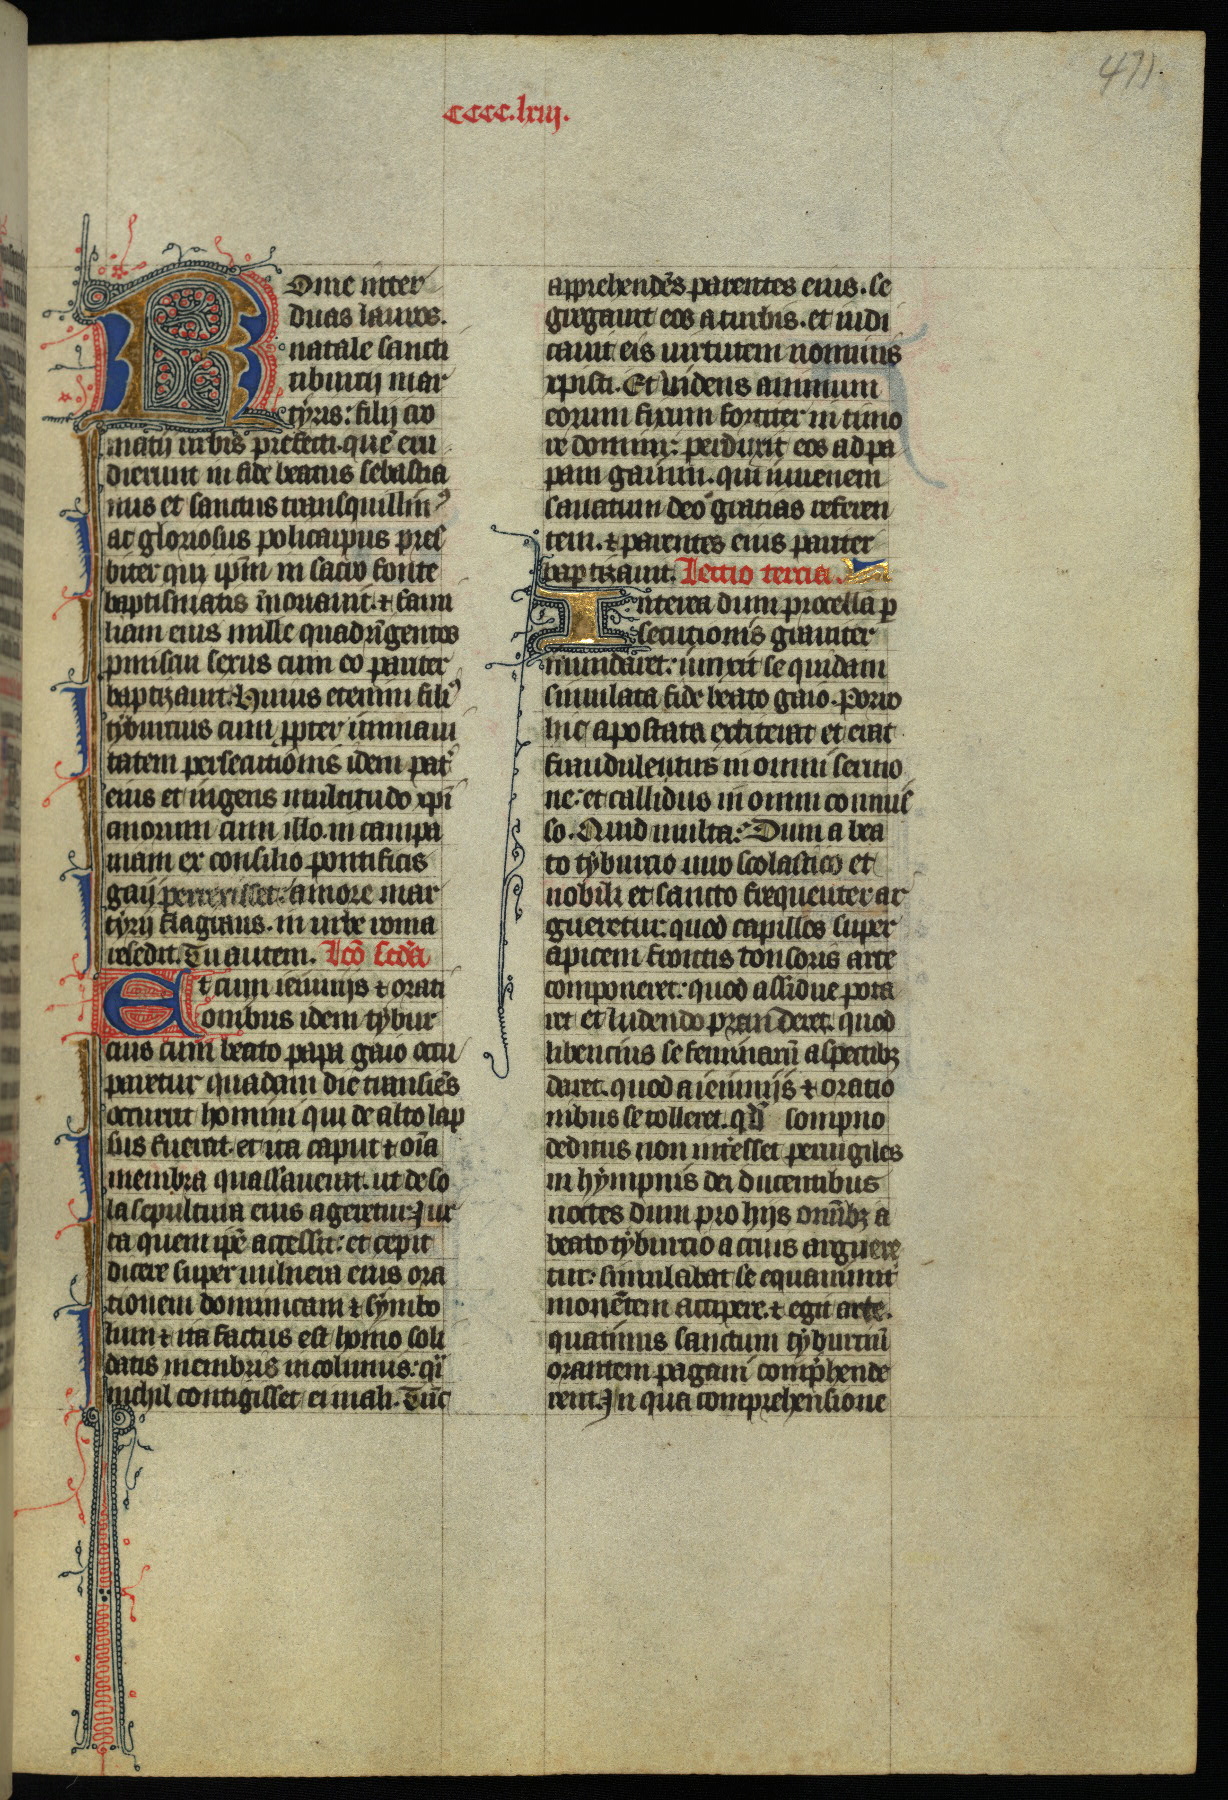 471.
cccc.lxiij.
Rome inter
duas lauros.
natale sancti
tiburtij mar
tÿris: filij cro
matij urbis prefecti. quē eru
dierunt in fide beatus sebastia
nus et sanctus transquillinꝰ
ac gloriosus policarpus pres
biter qui ip̄m in sacro fonte
baptismatis īnouauit. ⁊ fami
liam eius mille quadrīgentos
promiscui sexus cum eo pariter
baptizauit. Huius etenim filiꝰ
tÿburtius cum ꝓpter immani
tatem persecutionis idem pat̄
eius et ingens multitudo xp̄i
anorum cum illo. in campa
niam ex consilio pontificis
gaij perrexisset: amore mar
tÿrij flagrans. in urbe roma
resedit. Tu autem. Lc̄o scd̄a
Et cum ieiunijs ⁊ orati
onibus idem tÿbur
cius cum beato papa gaio occu
paretur quadam die transiēs
occurrit homini qui de alto lap
sus fuerat. et ita caput ⁊ om̄ia
membra quassauerat. ut de so
la sepultura eius ageretur. Jux
ta quem ip̄e accessit: et cepit
dicere super uulnera eius ora
tionem dominicam ⁊ sÿmbo
lum ⁊ ita factus est homo soli
datis membris incolumis: q̄i
nichil contigisset ei mali. Tūc
apprehendēs parentes eius. se
gregauit eos a turbis. et indi
cauit eis uirtutem nominis
xpisti. Et uidens animum
eorum fixum fortiter in timo
re domini: perduxit eos ad pa
pam gaium. qui iuuenem
sanatum deo gratias referen
tem. ⁊ parentes eius pariter
baptizauit. Lectio tercia.
Interea dum procella ꝑ
secutionis grauiter
inundaret: iunxit se quidam
simulata fide beato gaio. Porro
hic apostata extiterat et erat
fraudulentus in omni sermo
ne: et callidus in omni commis
so. Quid multa? Dum a bea
to tÿburcio uiro scolastico et
nobili et sancto frequenter ar
gueretur: quod capillos super
apicem frontis tonsoris arte
componeret: quod assidue pota
ret et ludendo pranderet. quod
libencius se feminarū aspectibꝫ
daret. quod a ieiunijs ⁊ oratio
nibus se tolleret. qd̄ sompno
deditus non intēesset peruigiles
in hÿmpnis dei ducentibus
noctes dum pro hijs omībꝫ a
beato tÿburcio acrius arguere
tur: simulabat se equanimit̄
monētem accipere. ⁊ egit arte.
quatinus sanctum tÿburtiū
orantem pagani compr̄hende
rent. In qua comprehensione